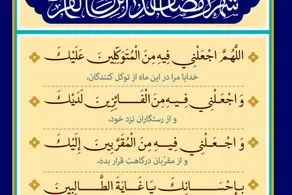 شهر رمضان الذی انزل فیه القرآن
اَللّهُمَّ اجْعَلْنِي فِيهِ مِنَ الْمُتَوَكِّلِينَ عَلَيْكَ
خدایا مرا در این ماه از توکل کنندگان،
وَ اجْعَلْنِي فِيهِ مِنَ الْفَائِزِينَ لَدَيْكَ
و از رستگاران نزد خود،
وَ اجْعَلْنِي فِيهِ مِنَ الْمُقَرَّبِينَ إِلَيْكَ
و از مقربان درگاهت قرار بده،
بِإِحْسَانِكَ يَا غَايَةَ الطَّالِبِينَ